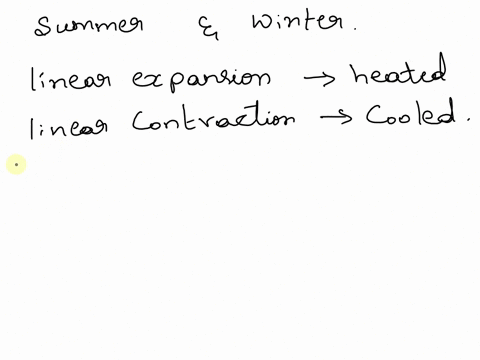 Summer & Winter.
linear expansion → heated
linear Contraction → Cooled.